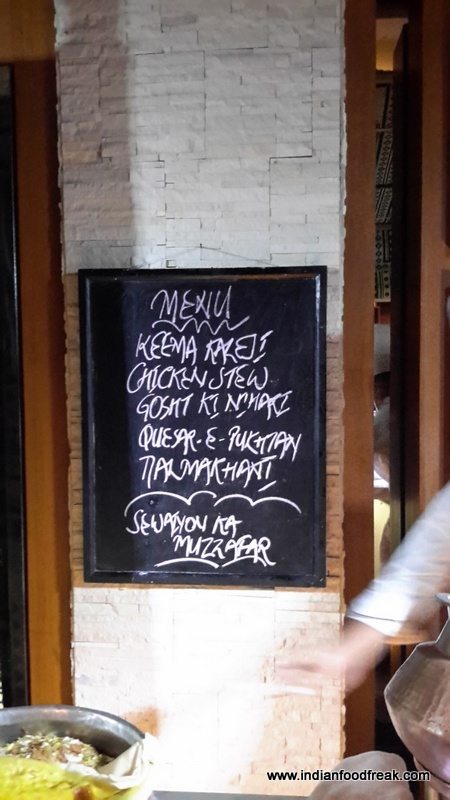 MENU
KEEMA KALEJI
CHICKEN STEW
GOSHT KI NIHARI
QUESAR-E-PUKHTAN
DAL MAKHANI
SEWAIYON KA
MUZZAFAR
www.indianfoodfreak.com